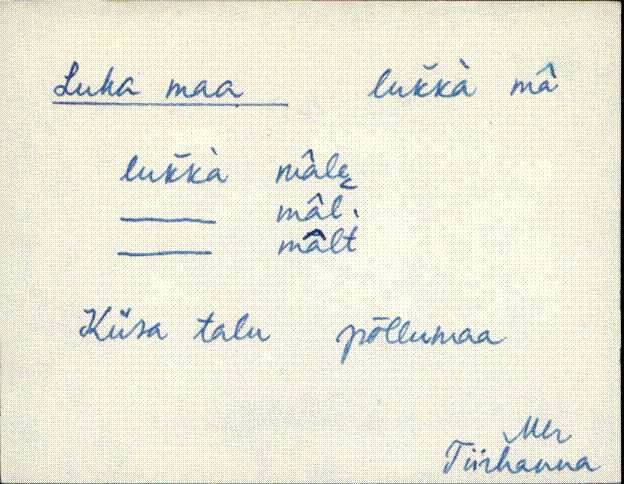 Luka maa lukkà mâ
lukkà mâlę
mâl.
mâlt
Küsa talu põllumaa
Mtr
Tiirhanna